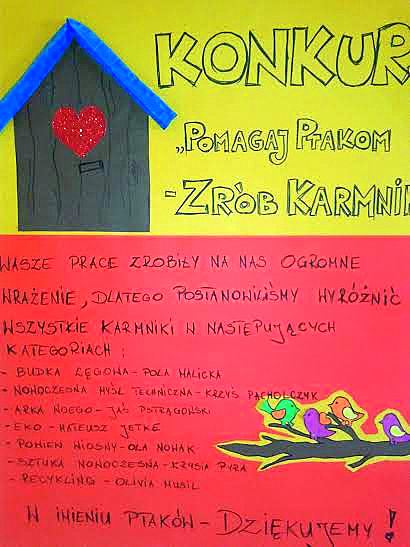 KONKUR
„POMAGAJ PTAKOM
-ZRÓB KARMNI
WASZE PRACE ZROBIŁY NA NAS OGROMNE
WRAŻENIE, DLATEGO POSTANOWILIŚMY WYRÓŻNIĆ
WSZYSTKIE KARMNIKI W NASTĘPUJĄCYCH
KATEGORIACH:
- BUDKA LĘGOWA - POLA MALICKA
- NOWOCZESNA MYŚL TECHNICZNA - KRZYŚ PACHOLCZYK
- ARKA NOEGO - JAŚ PSTRĄGOWSKI
- EKO - MATEUSZ JETKE
- POWIEW WIOSNY - OLA NOWAK
- SZTUKA NOWOCZESNA - KRYSIA PYRA
- RECYKLING - OLIVIA MUSIL
W IMIENIU PTAKÓW - DZIĘKUJEMY!